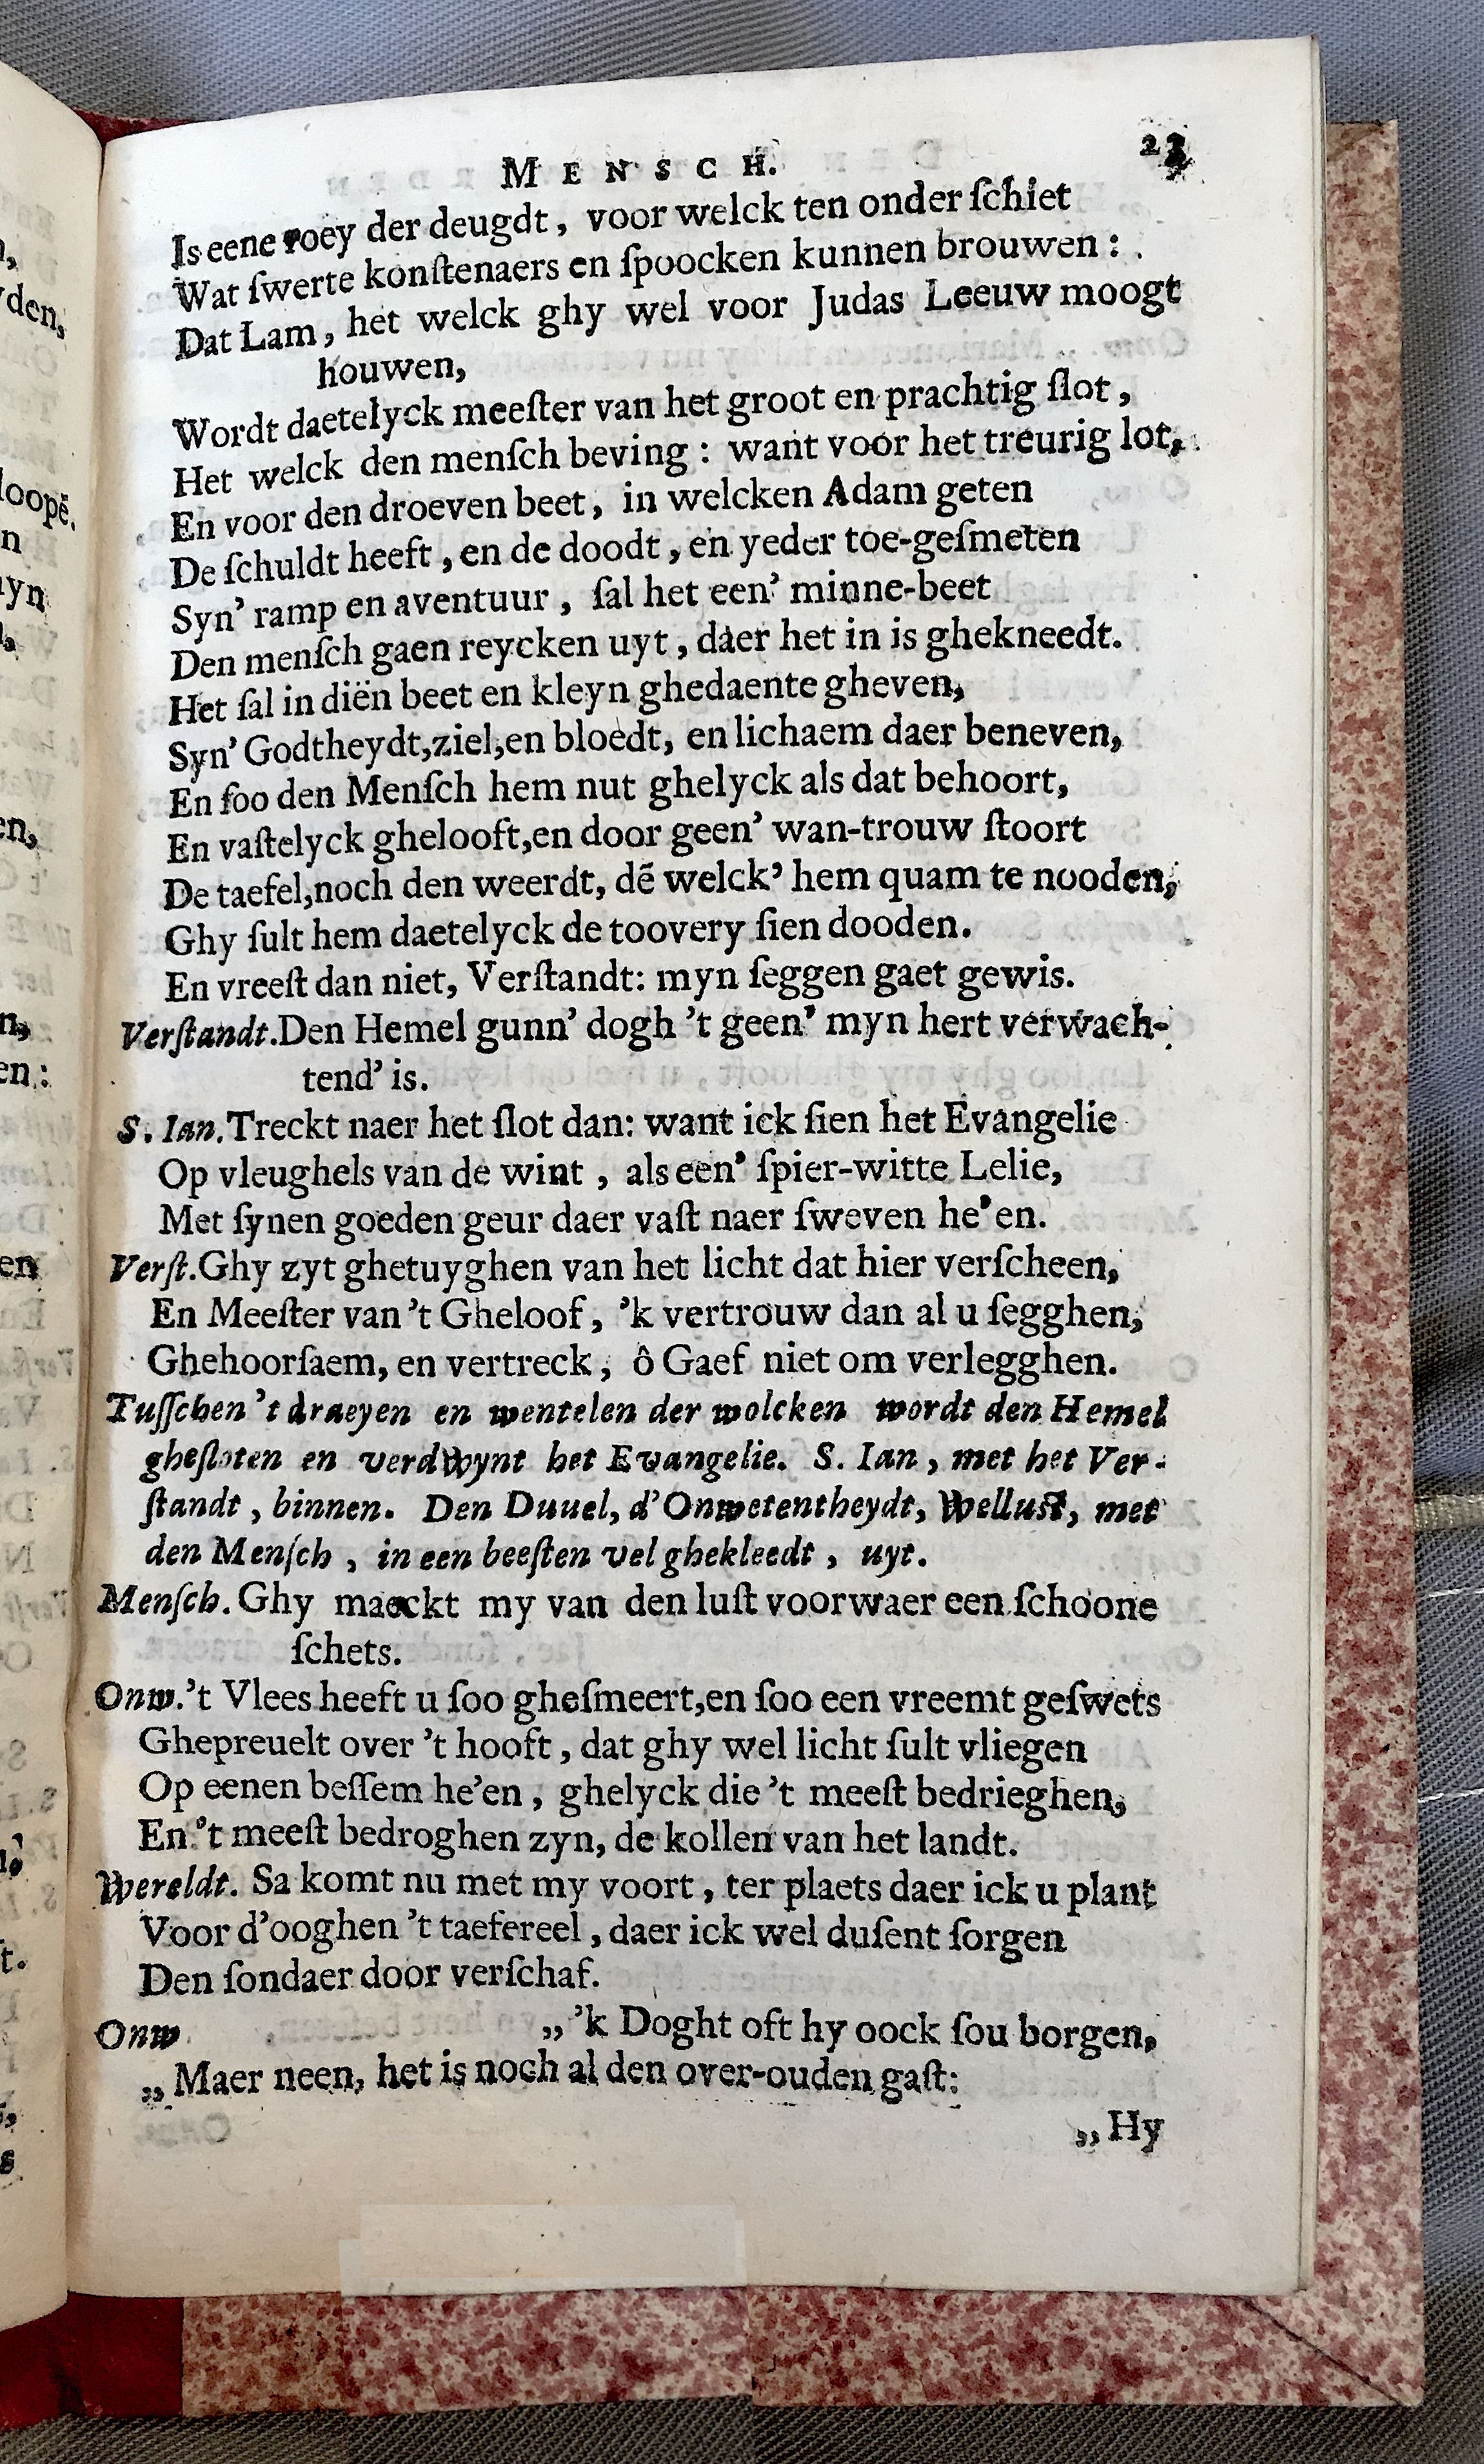 MENSCH. 23
Is eene roey der deugdt, voor welck ten onder ſchiet
Wat ſwerte konſtenaers en ſpoocken kunnen brouwen:
Dat Lam, het welck ghy wel voor Judas Leeuw moogt
houwen,
Wordt daetelyck meeſter van het groot en prachtig ſlot,
Het welck den menſch beving: want voor het treurig lot,
En voor den droeven beet, in welcken Adam geten
De ſchuldt heeft, en de doodt, en yeder toe-geſmeten
Syn' ramp en aventuur, ſal het een' minne-beet
Den menſch gaen reycken uyt, daer het in is ghekneedt.
Het ſal in diën beet en kleyn ghedaente gheven,
Syn' Godtheydt, ziel, en bloedt, en lichaem daer beneven,
En ſoo den Menſch hem nut ghelyck als dat behoort,
En vaſtelyck ghelooft, en door geen' wan-trouw ſtoort
De taefel, noch den weerdt, dē welck' hem quam te nooden,
Ghy ſult hem daetelyck de toovery ſien dooden.
En vreeſt dan niet, Verſtandt: myn ſeggen gaet gewis.
Verſtandt. Den Hemel gunn' dogh 't geen' myn hert verwach-
tend' is.
S. Ian. Treckt naer het ſlot dan: want ick ſien het Evangelie
Op vleughels van de wint, als een' ſpier-witte Lelie,
Met ſynen goeden geur daer vaſt naer ſweven he'en.
Verſt. Ghy zyt ghetuyghen van het licht dat hier verſcheen,
En Meeſter van 't Gheloof, 'k vertrouw dan al u ſegghen,
Ghehoorſaem, en vertreck, ô Gaef niet om verlegghen.
Tuſſchen 't draeyen en wentelen der wolcken wordt den Hemel
gheſloten en verdwynt het Evangelie. S. Ian, met het Ver-
ſtandt, binnen. Den Duuel, d'Onwetentheydt, Wellust, met
den Menſch, in een beeſten vel ghekleedt, uyt.
Menſch. Ghy maeckt my van den luſt voorwaer een ſchoone
ſchets.
Onw. 't Vlees heeft u ſoo gheſmeert, en ſoo een vreemt geſwets
Ghepreuelt over 't hooft, dat ghy wel licht ſult vliegen
Op eenen beſſem he'en, ghelyck die 't meeſt bedrieghen,
En 't meeſt bedroghen zyn, de kollen van het landt.
Wereldt. Sa komt nu met my voort, ter plaets daer ick u plant
Voor d'ooghen 't taefereel, daer ick wel duſent ſorgen
Den ſondaer door verſchaf.
Onw „'k Doght oft hy oock ſou borgen,
„Maer neen, het is noch al den over-ouden gaſt:
„Hy